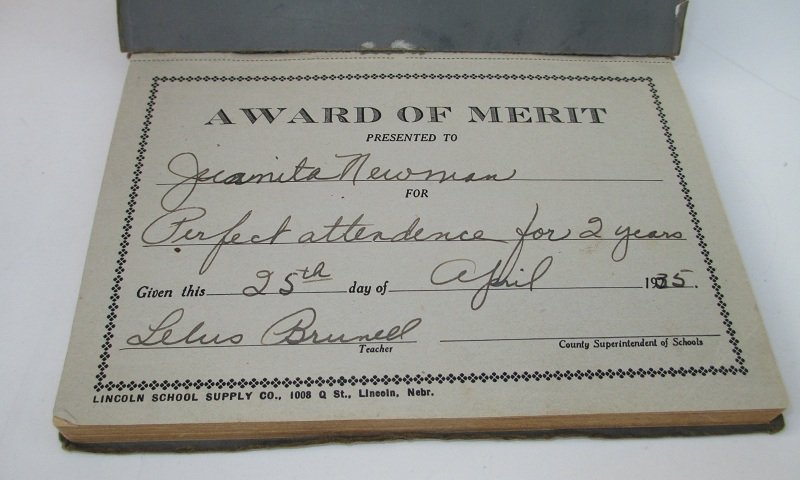 AWARD OF MERIT
PRESENTED TO
Juanita Newman
FOR
Perfect attendence for 2 years
Given this 25th day of April 1935.
Brunell
Teacher
County Superintendent of Schools
LINCOLN SCHOOL SUPPLY CO., 1008 Q St., Lincoln, Nebr.